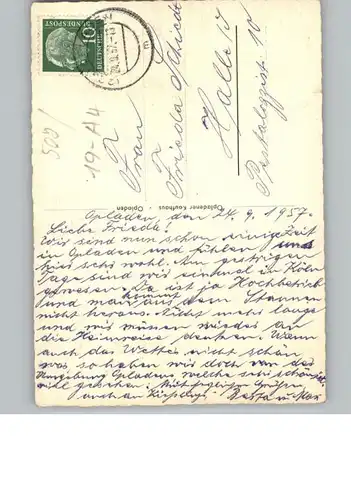 DEUTSCHE BUNDESPOST
10
500/
19-A4
Frau
Frieda Schiedt
Halle S
Pestalozzistr. 10
Opladener Kaufhaus · Opladen
Opladen, den 24. 9. 1957.
Liebe Friedel!
Wir sind nun schon einige Zeit
in Opladen und fühlen uns
hier sehr wohl. Am gestrigen
Tage sind wir einmal in Köln
gewesen. Da ist ja Hochbetrieb
und man kommt aus dem Staunen
nicht heraus. Nicht mehr lange
und wir müssen wieder an
die Heimreise denken. Wenn
auch das Wetter nicht schön
war so haben wir doch von der
Umgebung Opladens welche sehr schön ist,
viel gesehen. Mit herzlichen Grüßen
auch an
u. Max